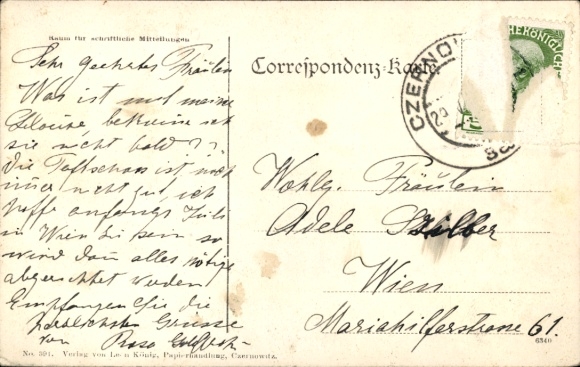 Raum für schriftliche Mitteilungen
Sehr geehrtes Fräulein
Was ist mit meiner
Blouse, bekomme ich
sie nicht bald??
Die ist noch
immer nicht gut ich
hoffe anfangs Juli
in Wien zu sein so
wird dan alles nötige
abgerichtet werden
Empfangen Sie die
herzlichsten Grüsse
von Rosa
No. 391. Verlag von Leon König, Papierhandlung, Czernowitz.
Correspondenz-Karte
CZERNO
Wohlg. Fräulein
Adele
Wien
Mariahilferstrasse 61.
6340